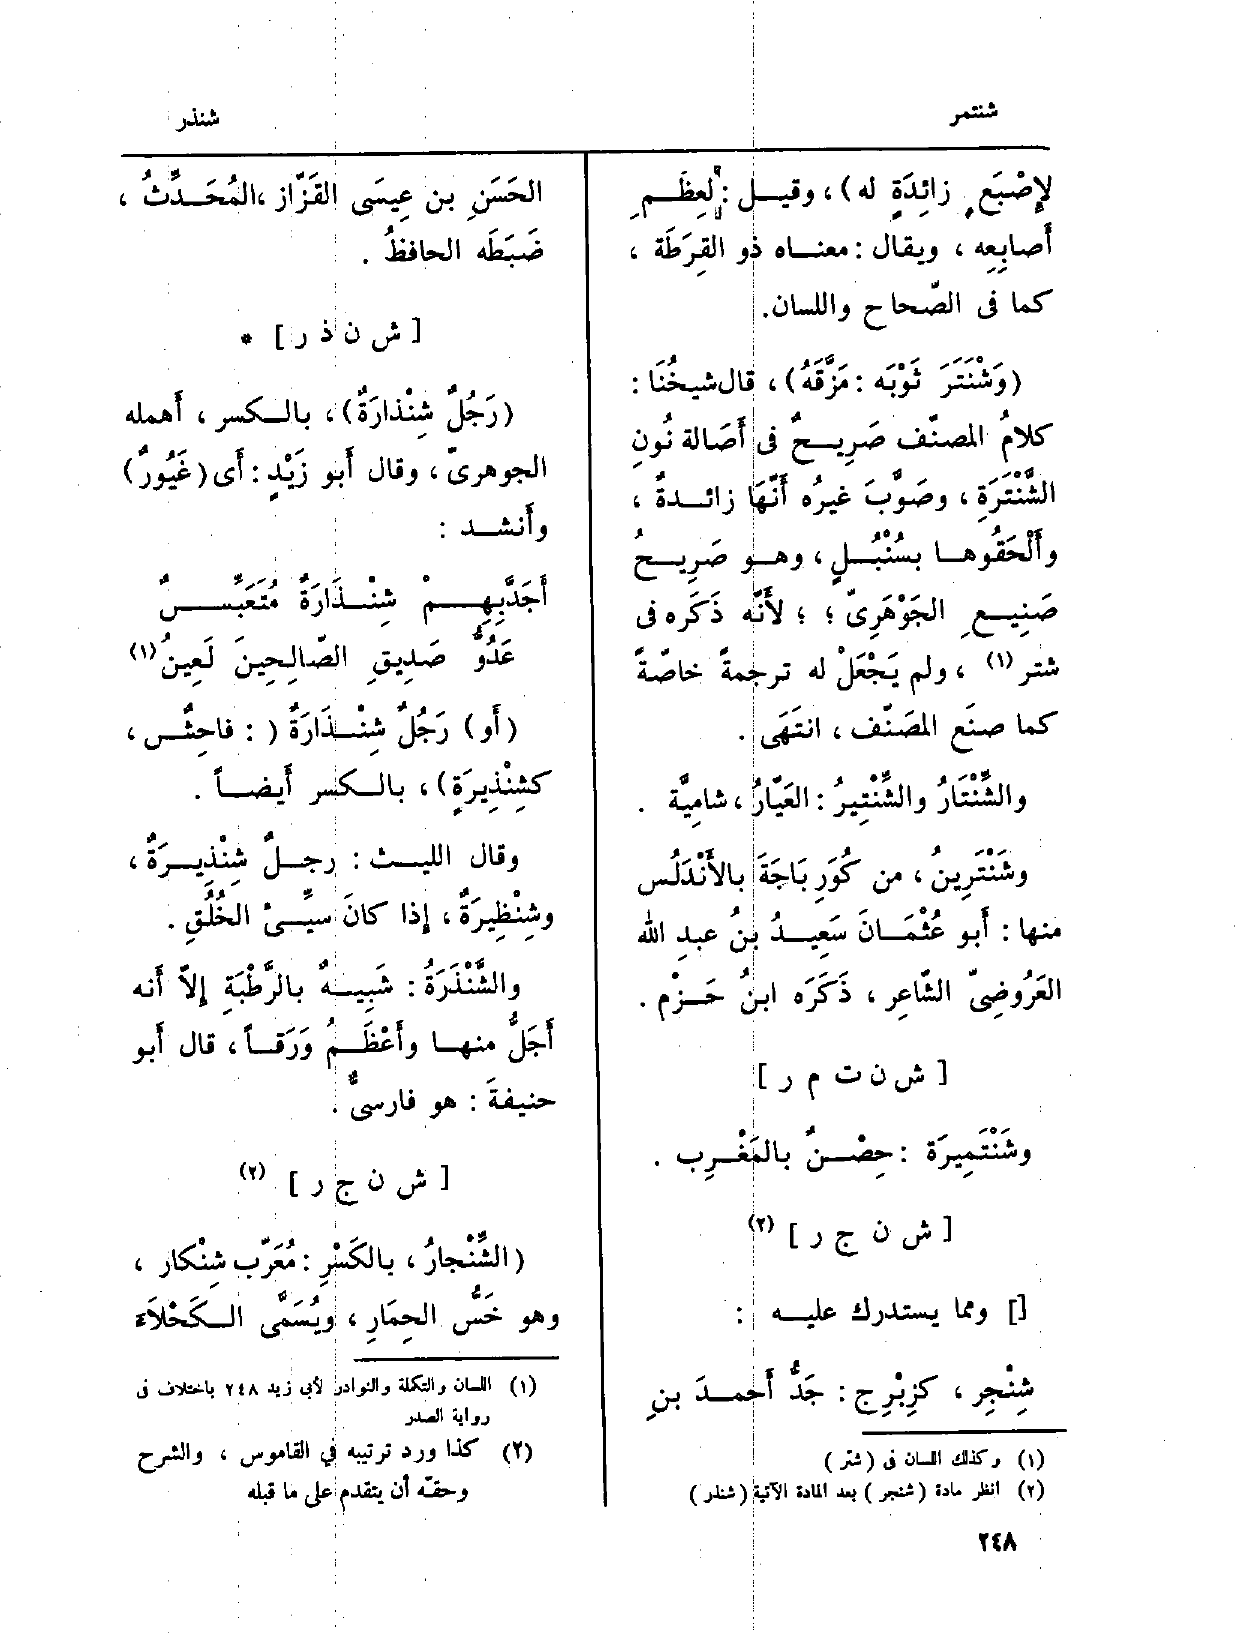 شنتمر
شنذر
لإِصْبَعٍ زائِدَةٍ له) ، وقيـل : لعِظَـمِ
أصابِعِه ، ويقال : معنـاه ذو القِرَطَة ،
كما فى الصّحاح واللسان .
(وَشَنْتَرَ ثَوْبَه : مَزَّقَهُ) ، قال شيخُنَا :
كلامُ المصنّف صَرِيـحٌ فى أَصَالة نُونِ
الشَّنْتَرَةِ ، وصَوَّبَ غيرُه أَنَّهَا زائـدةٌ ،
وأَلْحَقُوهـا بسُنْبُـلٍ ، وهـو صَرِيـحُ
صَنِيـعِ الجَوْهَرِىّ ؛ ؛ لأَنَّه ذَكَره فى
شتر (١) ، ولم يَجْعَلْ له ترجمةً خاصّةً
كما صنَع المصَنّف ، انتَهَى .
والشِّنْتَارُ والشِّنْتِيرُ : العَيّارُ ، شامِيَّة .
وشَنْتَرِينُ ، من كُوَرِ بَاجَةَ بالأَنْدَلُس
منها : أبو عُثْمَـانَ سَعِيـدُ بنُ عبدِ الله
العَرُوضِىّ الشّاعِر ، ذَكَرَه ابنُ حَـزْم .
[ ش ن ت م ر ]
وشَنْتَمِيرَة : حِصْـنٌ بالمَغْـرِب .
[ ش ن ج ر ] (٢)
[] ومما يستدرك عليـه :
شِنْجِر ، كزِبْرِج : جَدُّ أَحمـدَ بنِ
(١) وكذلك اللسان فى (شتر)
(٢) انظر مادة (شنجر) بعد المادة الآتية (شنذر)
الحَسَنِ بن عِيسَى القَزّاز ، المُحَـدِّثُ ،
ضَبَطَه الحافظُ .
[ ش ن ذ ر ] *
(رَجُلٌ شِنْذارَةٌ) ، بالـكسر ، أهمله
الجوهرىّ ، وقال أَبو زَيْدٍ : أَى (غَيُورٌ)
وأَنشـد :
أَجَدَّبِهِـمْ شِنْـذَارَةٌ مُتَعَبِّـسٌ
عَدُوُّ صَدِيقِ الصّالِحِينَ لَعِينُ (١)
(أَو) رَجُلٌ شِنْـذَارَةٌ ( : فاحِشٌ ،
كشِنْذِيرَةٍ) ، بالـكسر أَيضـاً .
وقال الليـث : رجـلٌ شِنْذِيـرَةٌ ،
وشِنْظِيرَةٌ ، إذا كانَ سيِّـئَ الخُلُقِ .
والشَّنْذَرَةُ : شَبِيـهٌ بالرَّطْبَةِ إلاّ أنه
أَجَلُّ منهـا وأَعْظَـمُ وَرَقـاً ، قال أبو
حنيفةَ : هو فارسىٌّ .
[ ش ن ج ر ] (٢)
(الشِّنْجارُ ، بالكَسْرِ : مُعَرّب شِنْكار ،
وهو خَسُّ الحِمَارِ ، ويُسَمَّى الـكَحْلاَءَ
(١) اللسان والتكملة والنوادر لأبى زيد ٢٤٨ باختلاف فى
رواية الصدر
(٢) كذا ورد ترتيبه في القاموس ، والشرح
وحقّه أن يتقدم على ما قبله
٢٤٨